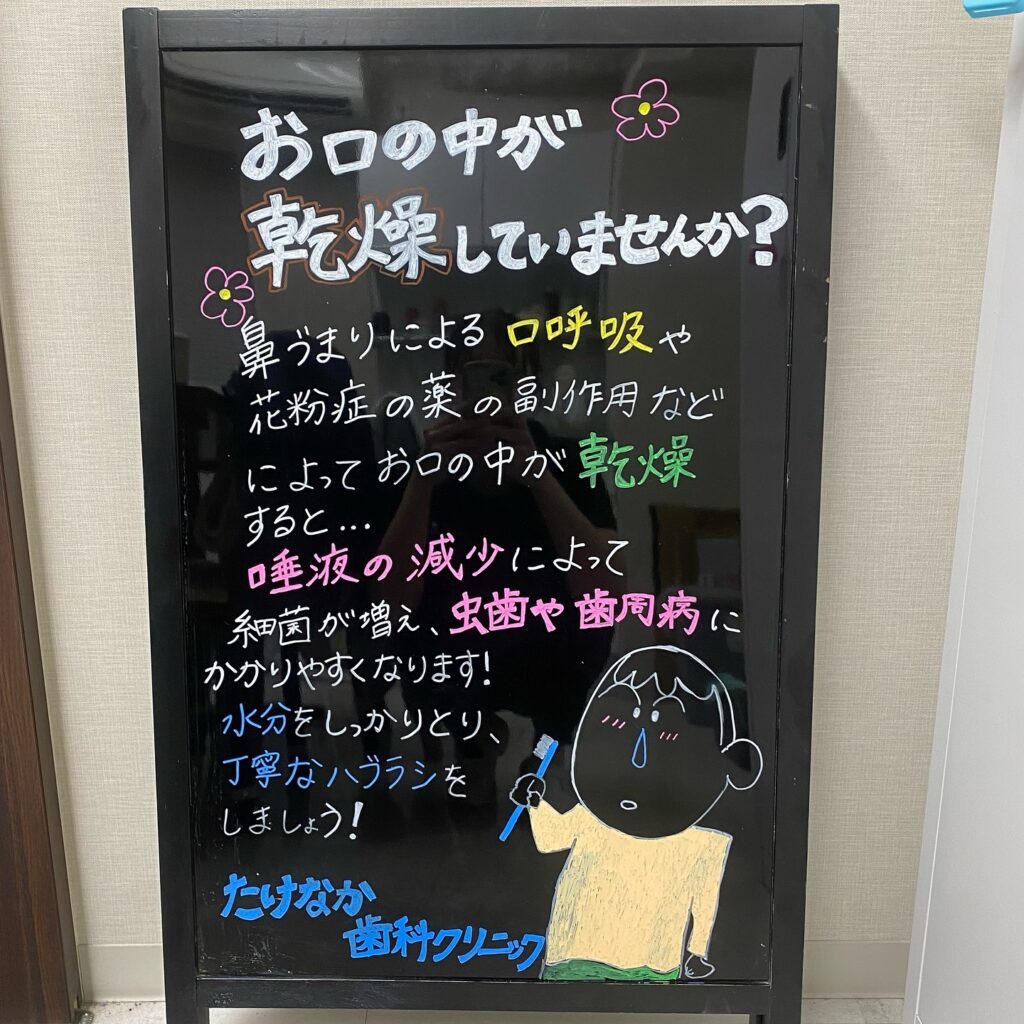 お口の中が
乾燥していませんか?
鼻づまりによる口呼吸や
花粉症の薬の副作用など
によってお口の中が乾燥
すると...
唾液の減少によって
細菌が増え、虫歯や歯周病に
かかりやすくなります!
水分をしっかりとり、
丁寧なハブラシを
しましょう!
たけなか
歯科クリニック